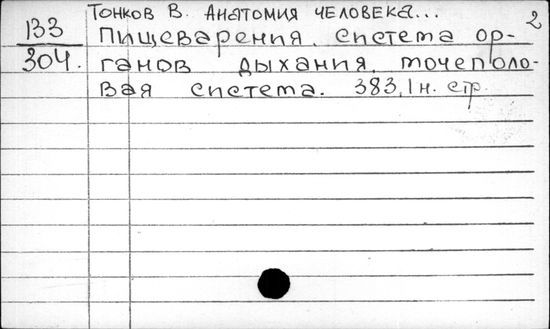 Тонков В. Анатомия человека... 2
133 Пищеварения, система ор-
304. ганов дыхания, мочеполо-
вая система. 383, 1 н. стр.